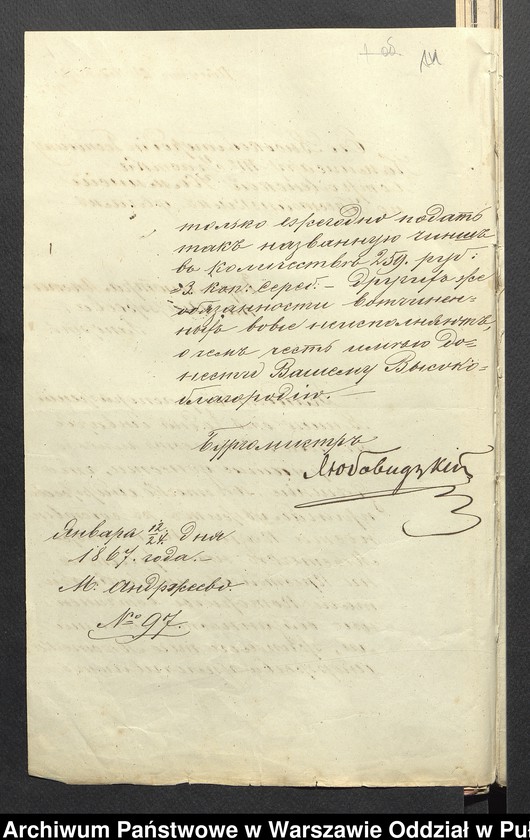 1 об. 
только ежегодно подать
такъ названную чиншъ
въ количествѣ 259. руб:
3 коп: сереб. – Другихъ же
обязанности вотчинен-
ныхъ вовсе неисполняютъ,
о чемъ честь имѣю до-
нести Вашему Высоко-
благородію.
Бургомистръ
Любовидзкій
Января 12/24. дня
1867. года.
М. Андржеево.
№ 97.
Archiwum Państwowe w Warszawie Oddział w Pu